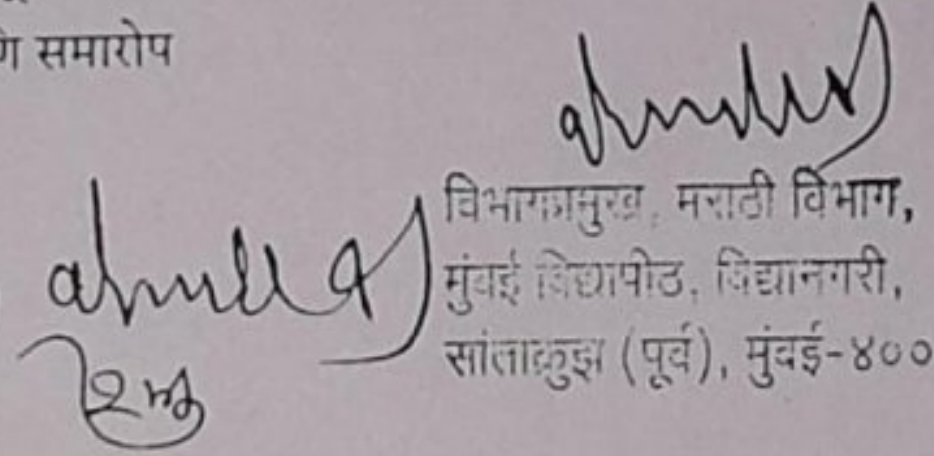 समारोप
विभागप्रमुख, मराठी विभाग,
मुंबई विद्यापीठ, विद्यानगरी,
सांताक्रुझ (पूर्व), मुंबई-४००